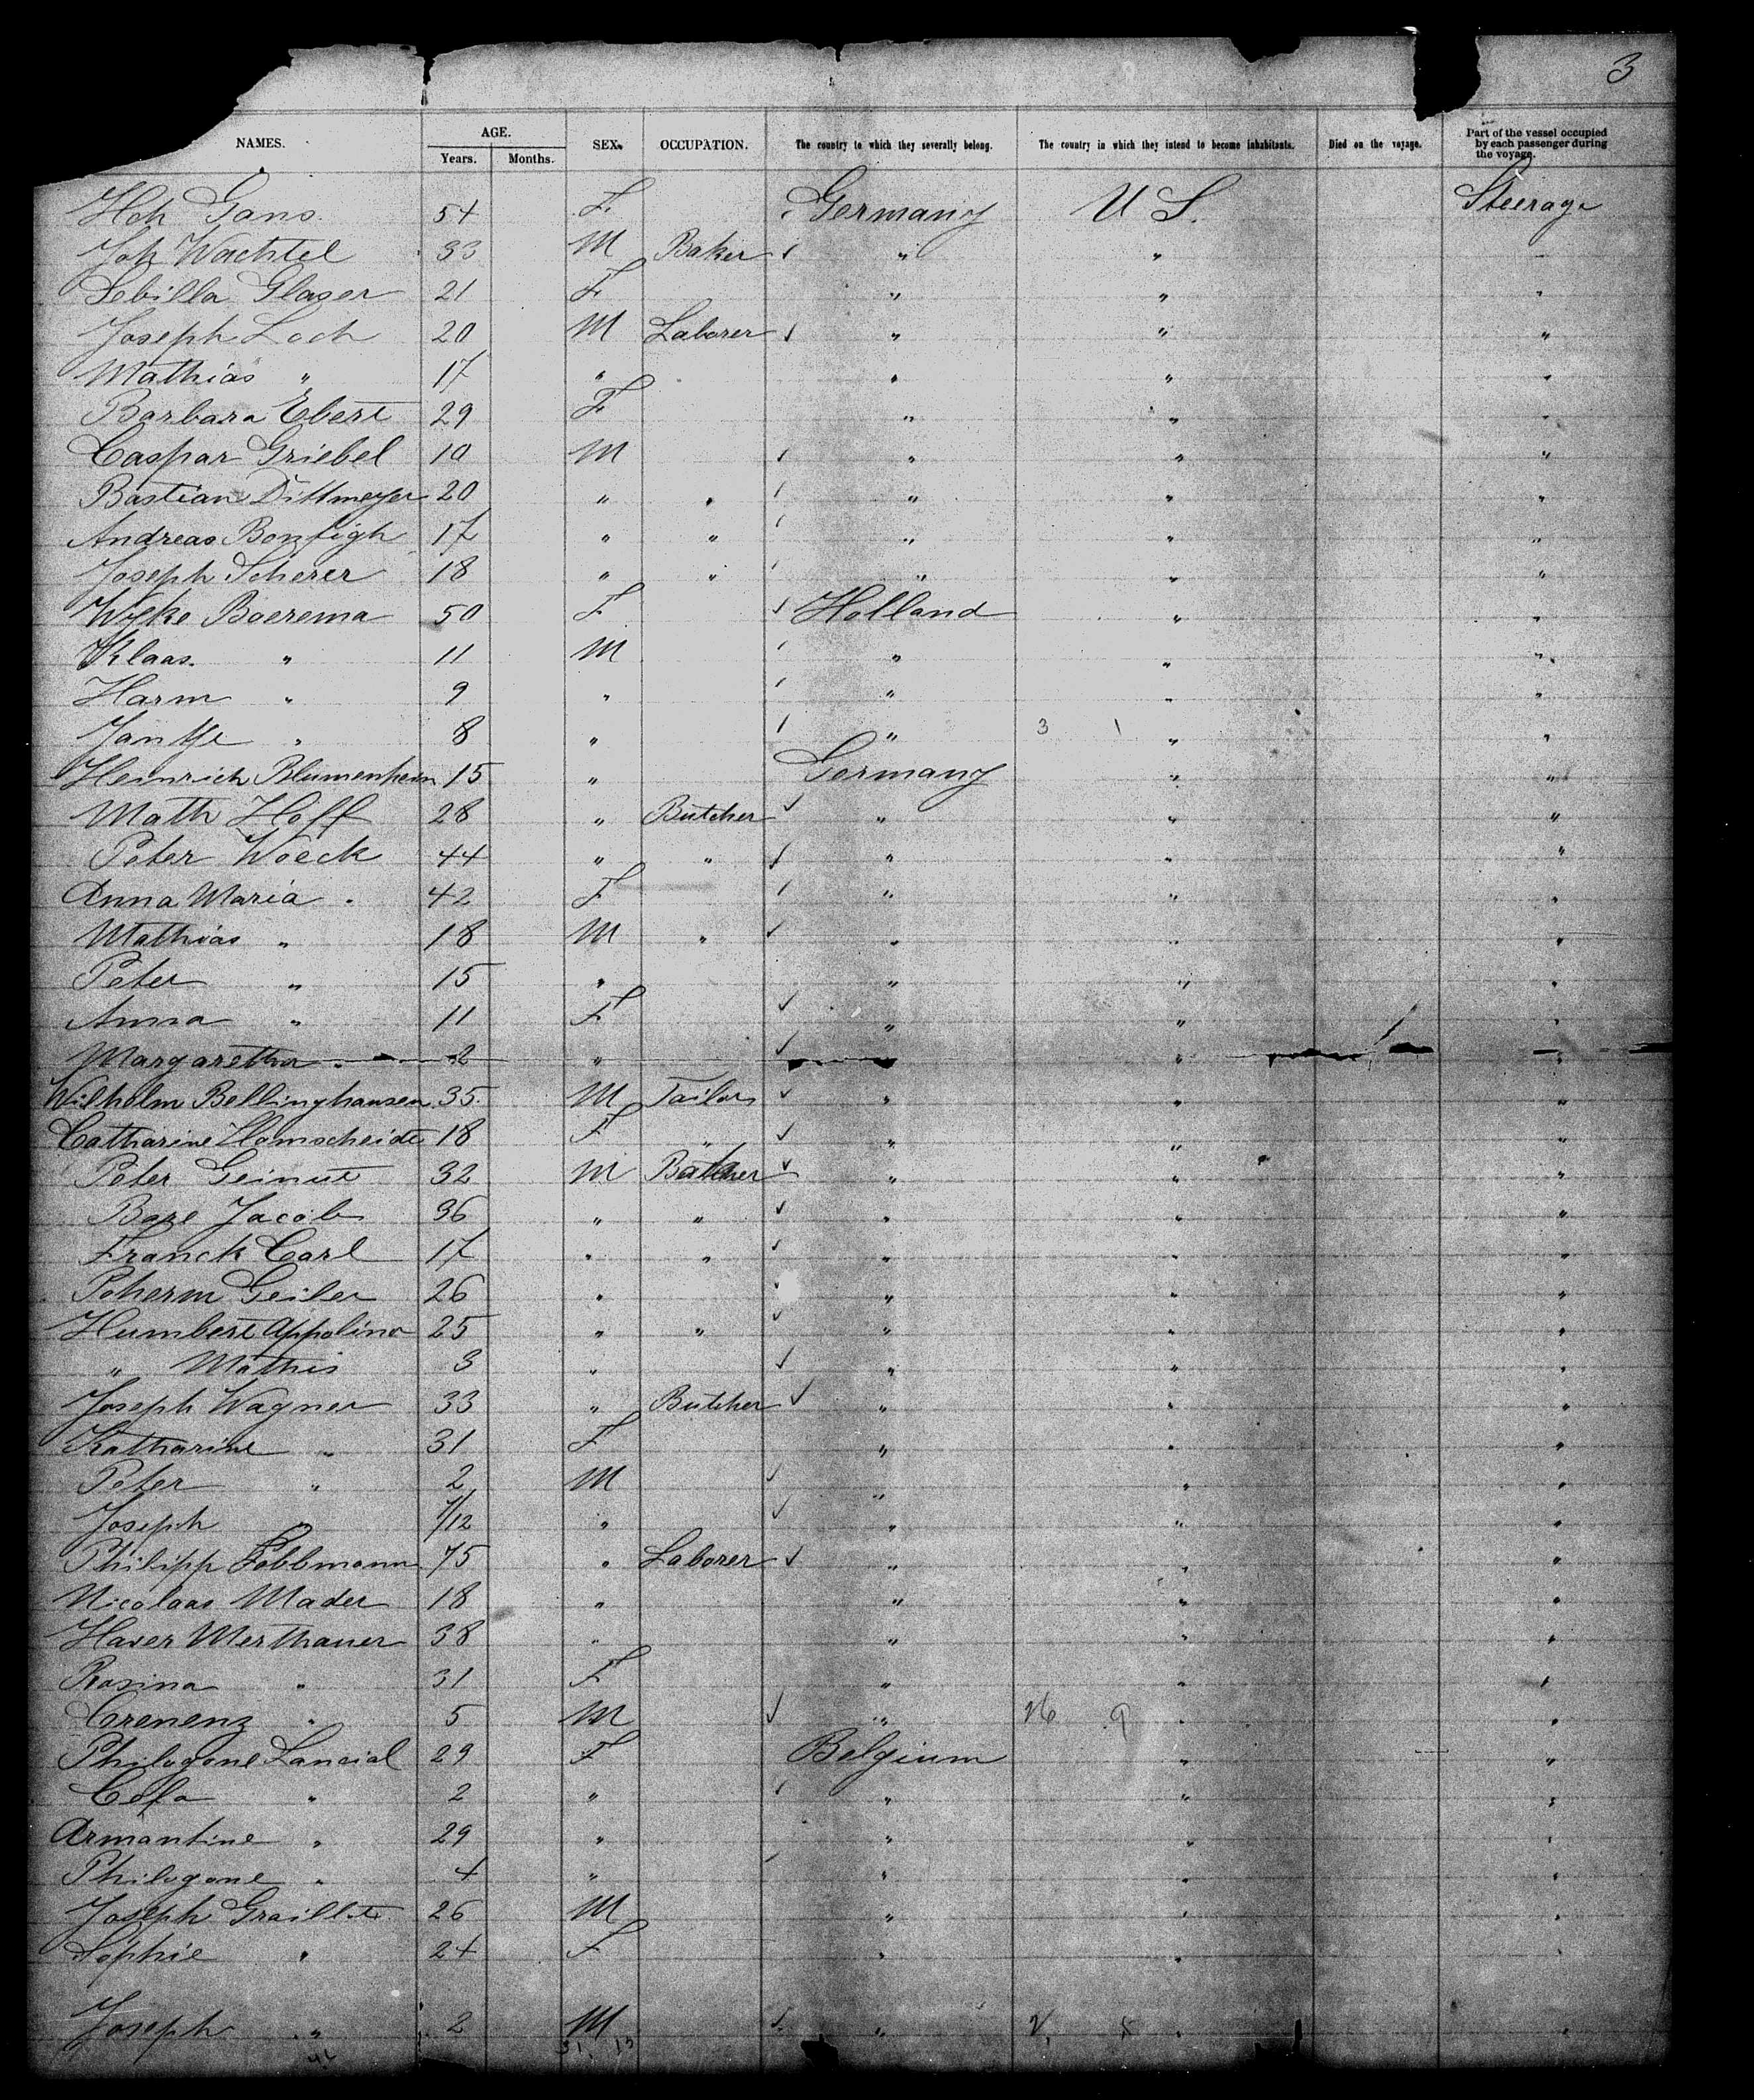 3
NAMES. AGE. SEX. OCCUPATION. The country to which they severally belong. The country in which they intend to become inhabitants. Died on the voyage. Part of the vessel occupied by each passenger during the voyage.
Years. Months.
Hch Gans 54 F Germany U S. Steerage
Joh Wachtel 33 M Baker " " "
Sebilla Glaser 21 F " " "
Joseph Loch 20 M Laborer " " "
Mathias " 17 " " " "
Barbara Ebert 29 F " " "
Caspar Griebel 10 M " " "
Bastian Dittmeyer 20 " " " " "
Andreas Bonfigh 17 " " " " "
Joseph Scherer 18 " " " " "
Wilke Boerema 50 F Holland " "
Klaas " 11 M " " "
Harm " 9 " " " "
Jantje " 8 " " 3 1 " "
Heinrich Blumenhein 15 " Germany " "
Math Hoff 28 " Butcher " " "
Peter Woeck 44 " " " " "
Anna Maria " 42 F " " "
Mathias " 18 M " " " "
Peter " 15 " " " "
Anna " 11 F " " "
Margaretha " 2 " " "
Wilhelm Bellinghausen 35 M Tailor " " "
Catharine Homscheidt 18 F " " " "
Peter Geinut 32 M Butcher " " "
Boze Jacob 36 " " " " "
Franck Carl 17 " " " " "
Poherm Geiler 26 " " " "
Humbert Appolina 25 " " " " "
" Mathis 3 " " " "
Joseph Wagner 33 " Butcher " " "
Katharine " 31 F " " "
Peter " 2 M " " "
Joseph " /12 " " " "
Philipp 75 " Laborer " " "
Nicolaas Mader 18 " " " "
Xaver Merthaner 38 " " " "
Rosina " 31 F " " "
Crenenz " 5 M " 26 9 " "
Philogone Lancial 29 F Belgium " "
" 2 " " " "
Armantine " 29 " " " "
Philogone " 4 " " " "
Joseph Graillet 26 M " " "
Sophie " 24 F " " "
Joseph " 2 M " " "